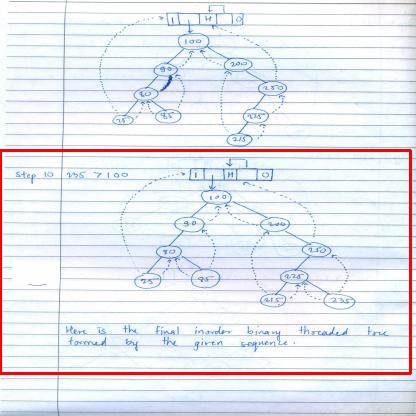 1 H 0
100
90 200
80 250
25 85 225
215
Step 10 235 > 100
1 H 0
100
90 200
80 250
25 85 225
215 235
Here is the final inorder binary threaded tree
formed by the given sequence.